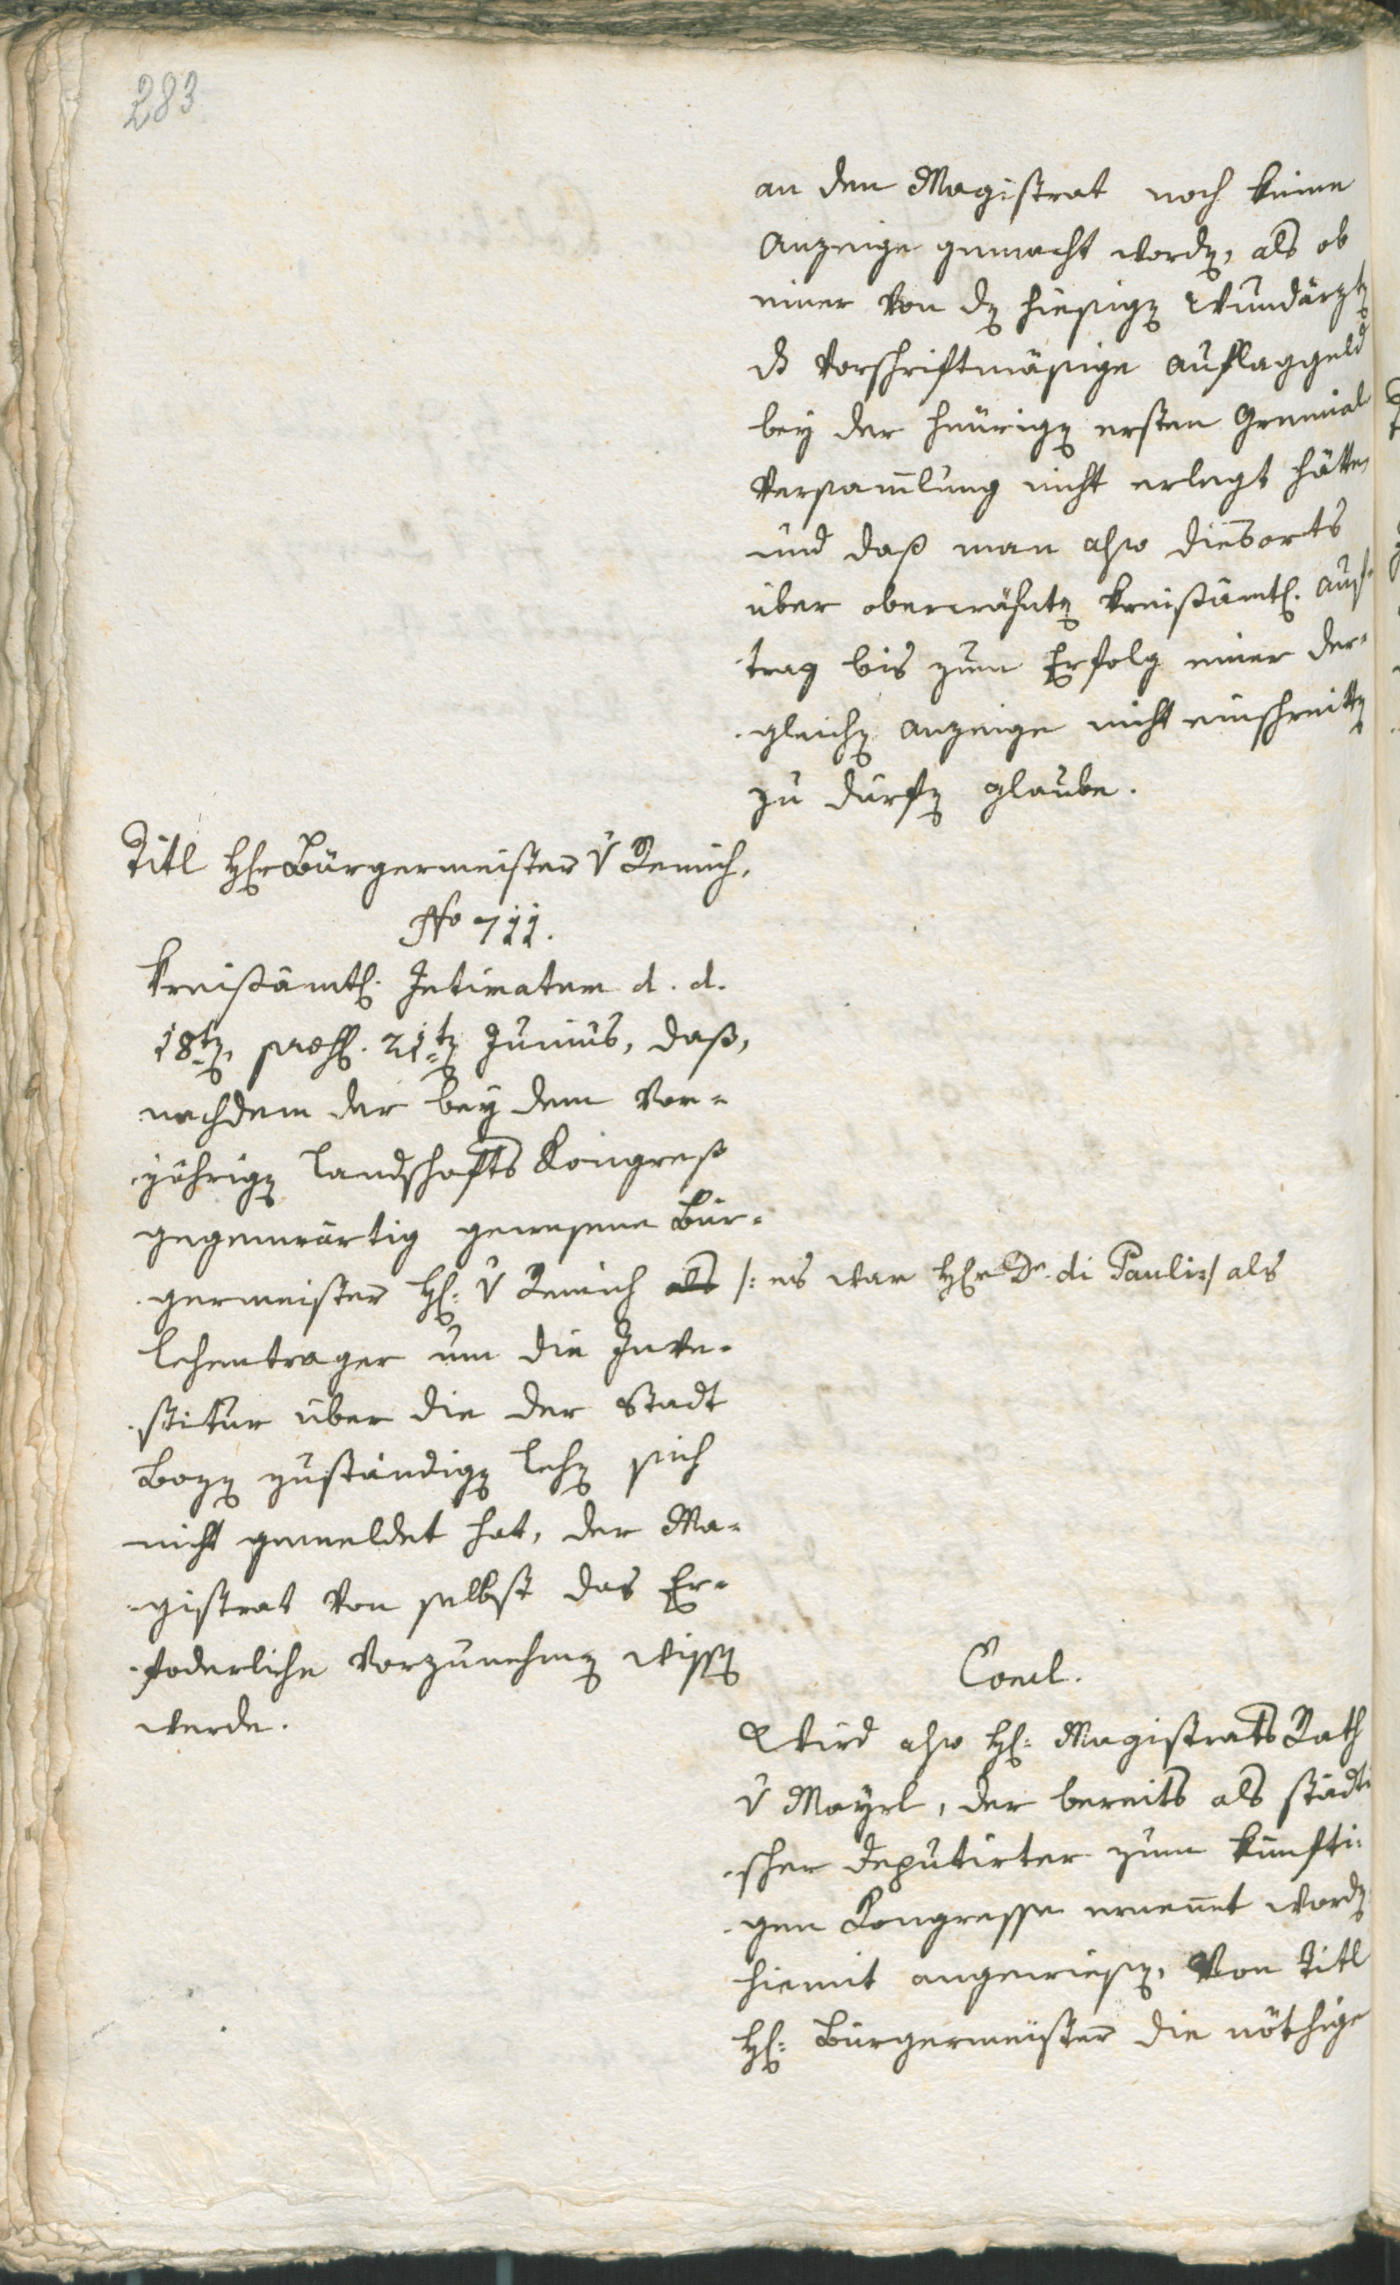 283
an den Magistrat noch keine
Anzeige gemacht worden, als ob
einer von den hiesigen Wundärzten
das vorschriftmäsige Auflaggeld
bey der heürigen ersten Gremial
Versam̅lung nicht erlegt hätte,
und daß man also diesorts
über oberwähnten kreisämtl. Auf¬
trag bis zum Erfolg einer der¬
gleichen Anzeige nicht einschreiten
zu dürfen glaube.
Titl Hhr Bürgermeister v Remich,
No 711.
Kreisämtl. Intimatum d. d.
18ten, praes. 21ten Junius, daß,
nachdem der bey dem vor¬
jährigen landschafts Kongreß
gegenwärtig gewesene Bür¬
germeister H: v Remich als /: es war Hhr Dr. di Pauli :/ als
lehentrager um die Inve¬
stitur über die der Stadt
Bozen zuständigen lehen sich
nicht gemeldet hat, der Ma¬
gistrat von selbst das Er¬
foderliche vorzunehmen wissen
werde.
Concl.
Wird also H: Magistrats Rath
v Mayrl, der bereits als städti
scher Deputirter zum künfti¬
gen Kongresse ernen̅et worden
hiemit angewiesen, von Titl
H: Bürgermeister die nöthige